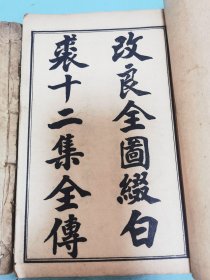 改良全圖綴白
裘十二集全傳